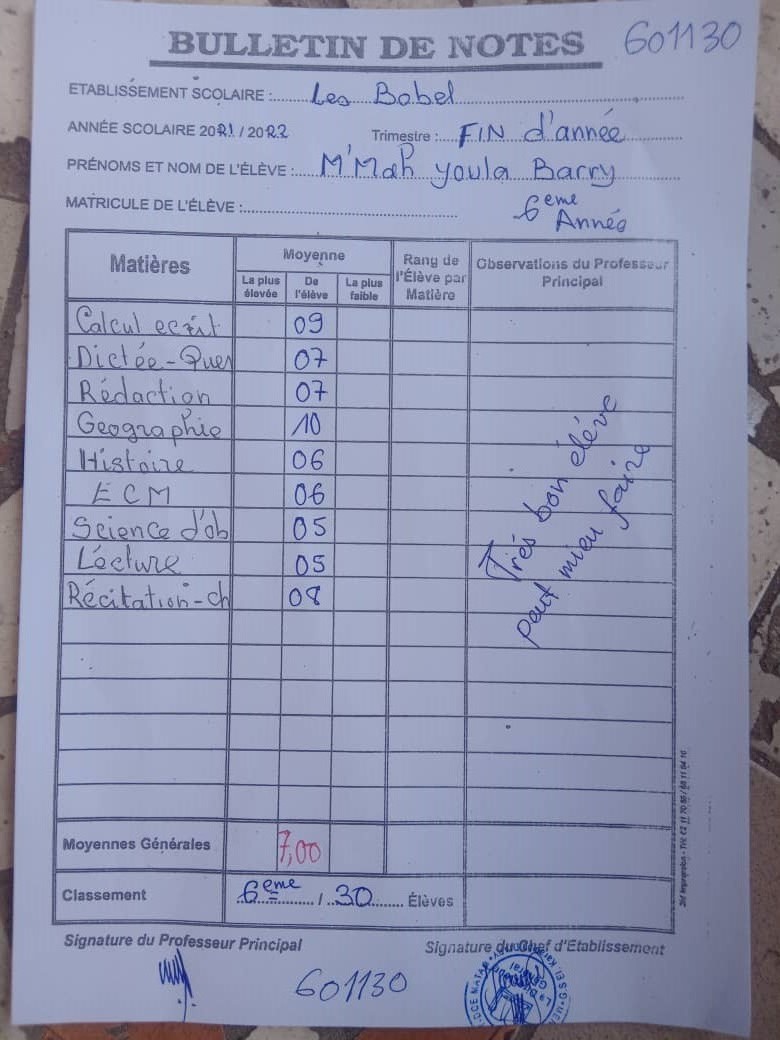 BULLETIN DE NOTES 601130
ETABLISSEMENT SCOLAIRE : Les Babel
ANNÉE SCOLAIRE 2021 / 2022 Trimestre : FIN d'année
PRÉNOMS ET NOM DE L'ÉLÈVE : M'Mah Youla Barry
MATRICULE DE L'ÉLÈVE : 6eme
Année
Matières Moyenne Rang de l'Élève par Matière Observations du Professeur Principal
La plus élevée De l'élève La plus faible
Calcul ecrit 09
Dictée-Ques 07
Rédaction 07
Geographie 10
Histoire 06
ECM 06
Science d'ob 05
Lécture 05
Récitation-ch 08
Trés bon élève
peut mieu faire
Moyennes Générales 7,00
Classement 6eme / 30 Élèves
Signature du Professeur Principal Signature du Chef d'Établissement
601130